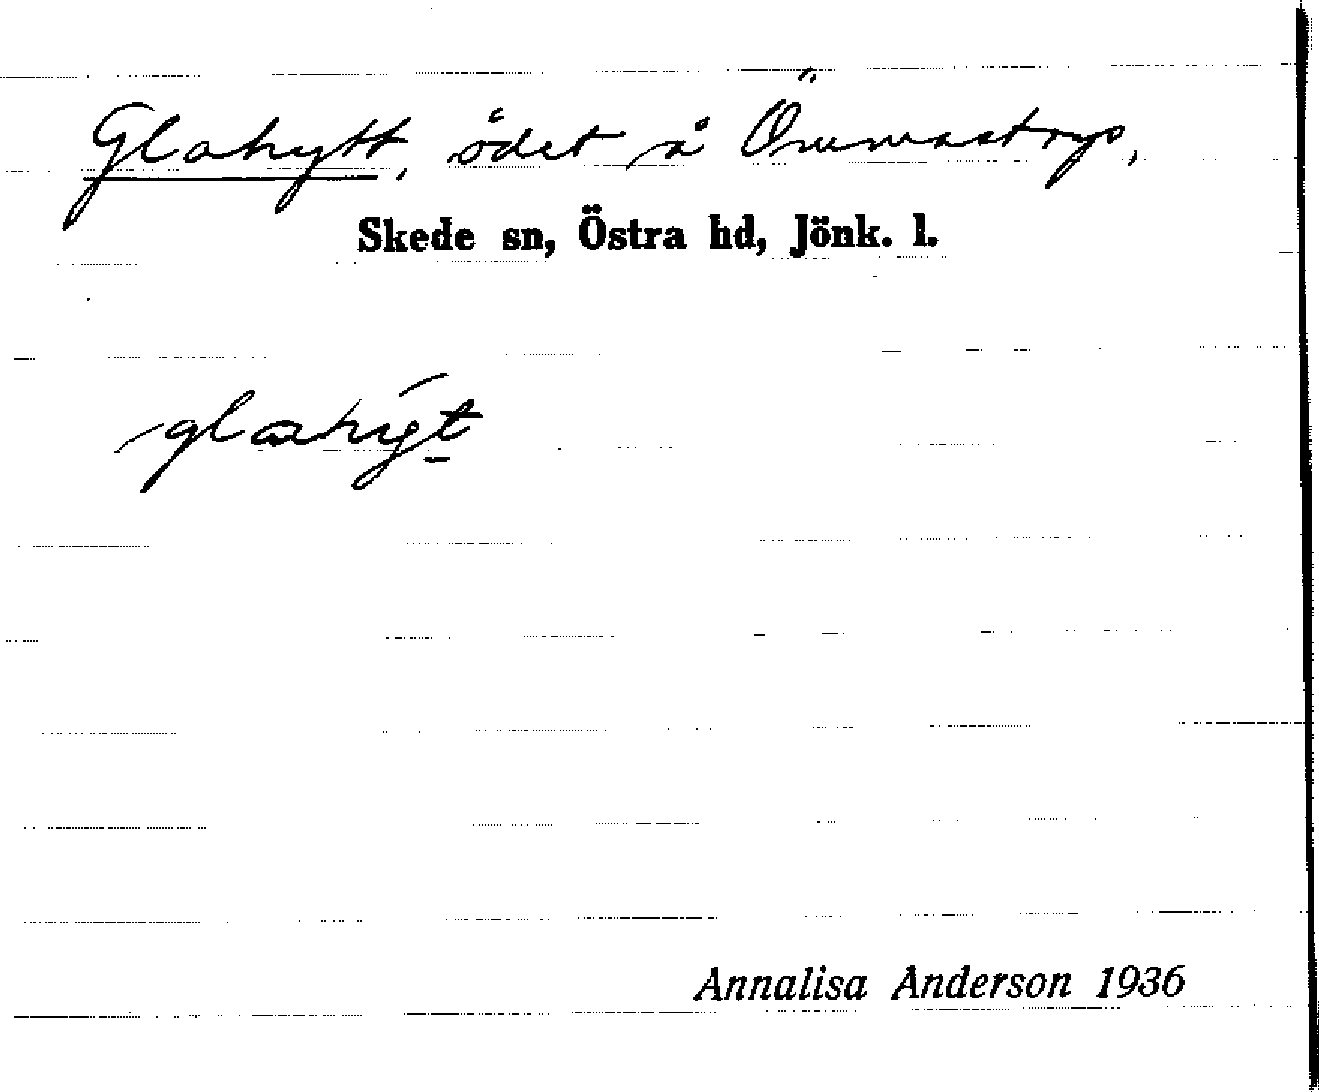 Glahytt, ödet å Ömmastorp,
Skede sn, Östra hd, Jönk. l.
Annalisa Anderson 1936